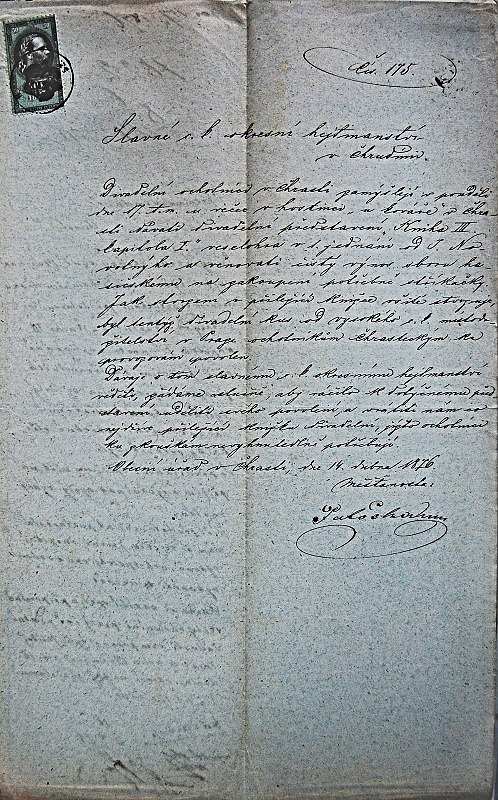 Čís. 175.
Slavné c. k. okresní hejtmanství
v Chrudimi.
Divadelní ochotníci v Chrasti pomýšlejí v pondělí
dne 17. t. m. u večer v hostinci u Kováře v Chra-
sti dávati divadelní představení, "Kniha III
kapitola I." veselohra v 1. jednání od J. No-
votného a věnovati čistý výnos sboru ha-
sičskému na zakoupení potřebné stříkačky.
Jak stojem v přiležící knížce vidět stojí
byl tentýž divadelní kus od vysokého c. k. místod-
ržitelství v Praze ochotníkům Chrasteckým ku
provozování povolen.
Dávaje o tom slavnému c. k. okresnímu hejtmanství
věděti, žádáme uctivě, aby ráčilo k dotyčnému před
stavení uděliti svého povolení a vrátiti nám co
nejdříve přiležící knížku divadelní, jíž ochotníci
ku zkouškám nevyhnutelně potřebují.
Obecní úřad v Chrasti, dne 14. dubna 1876.
Měšťanosta: